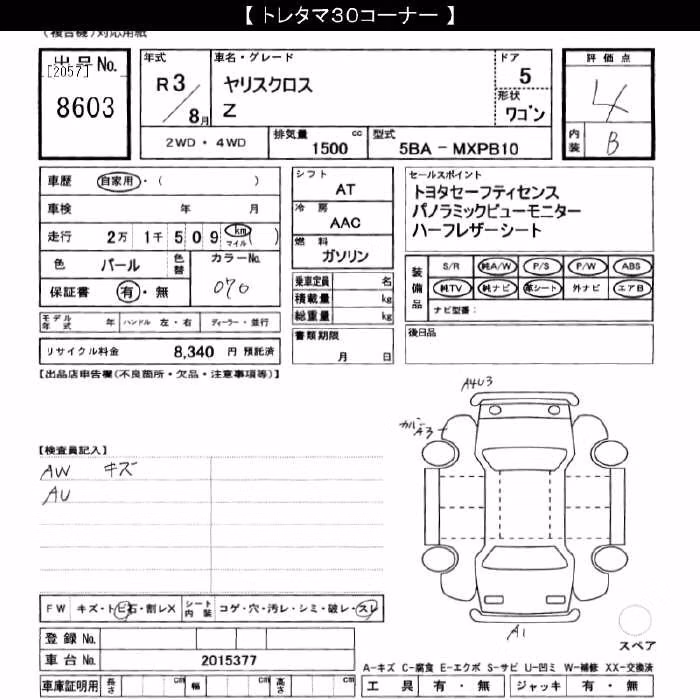 【 トレタマ30コーナー 】
(複合機)対応用紙
出品No.
[2057]
8603
年式
R 3 / 8月
車名・グレード
ヤリスクロス
Z
ドア
5
形状
ワゴン
評価点
4
内装
B
2WD・4WD
排気量 cc
1500
型式
5BA - MXPB10
車歴 自家用・( )
車検 年 月
走行 2万 1千 5 0 9 km マイル ( )
色 パール 色替 カラーNo.
070
保証書 有・無
モデル年式 年 ハンドル 左・右 ディーラー・並行
リサイクル料金 8,340 円 預託済
シフト
AT
冷房
AAC
燃料
ガソリン
乗車定員 名
積載量 kg
総重量 kg
書類期限
月 日
セールスポイント
トヨタセーフティセンス
パノラミックビューモニター
ハーフレザーシート
装備品
S/R 純A/W P/S P/W ABS
純TV 純ナビ 革シート 外ナビ エアB
ナビ型番:
後日品
【出品店申告欄(不良箇所・欠品・注意事項等)】
【検査員記入】
AW キズ
AU
A4U3
カバー A3
A1
スペア
FW キズ・トビ石・割レX シート内装 コゲ・穴・汚レ・シミ・破レ・スレ
登録 No.
車台 No. 2015377
車庫証明用 長さ cm 幅 cm 高さ cm
A-キズ C-腐食 E-エクボ S-サビ U-凹ミ W-補修 XX-交換済
工具 有・無 ジャッキ 有・無